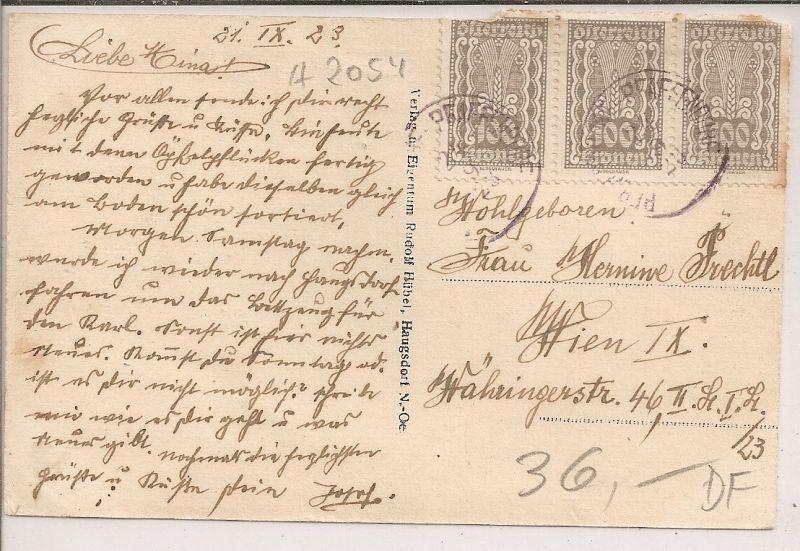 21. IX. 23.
Liebe Mina!
A 2054
Vor allem sende ich Dir recht
herzliche Grüße u Küsse. Bin heute
mit dem Äpfelpflücken fertig
geworden u habe dieselben gleich
am Boden schön sortiert,
Morgen Samstag nachm.
werde ich wieder nach Haugsdorf
fahren um das Bettzeug für
den Karl. Sonst ist hier nichts
neues. Kommst du Sonntag od.
ist es dir nicht möglich? schreibe
mir wie es dir geht u was
neues gibt.
nochmals die herzlichsten
Grüße u Küsse Dein Josef.
Verlag u. Eigentum Rudolf Hübel, Haugsdorf N.-Oe.
Österreich Österreich Österreich
400 400 400
Kronen Kronen Kronen
Wohlgeboren
Frau Hermine Prechtl
Wien IX.
Währingerstr. 46, II. St. I. St.
/23
36,—
DF